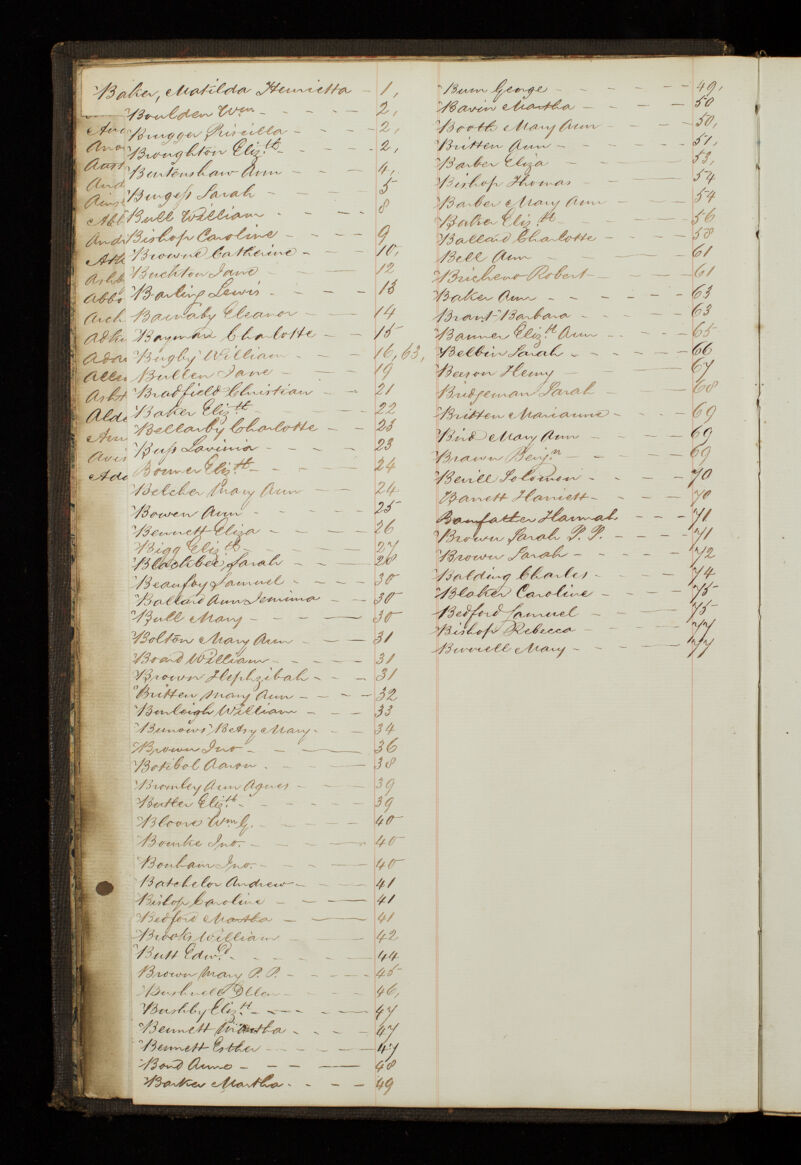 Baker, Matilda Henrietta - 1,
Boulden Wm - - - - 2,
Brugger Priscilla - - - - 2,
Broughton Elizth - - - - 2,
Bentenshaw Ann - - - 4,
Burgess Sarah - - - - 5
Bull William - - - 8
Bishop Caroline - - - 9
Browne Catherine - - 10,
Buckton Jane - - - 12
Barling Lewis - - - 13
Barnaby Eleanor - - 14
Bayman Charlotte - - 15
Bugby William - - - 16, 63,
Bullen Jane - - - 19
Bradfield Christian - - 21
Baker Elizth - - - 22
Bellarby Charlotte - - 23
Buss Lavinia - - - 23
Bonner Elizth - - - 24
Belcher Mary Ann - - 24
Bowen Ann - - - 25
Bennett Eliza - - - 26
Bigg Elizth - - - 27
Blackbee Sarah - - 28
Beaufoy Samuel - - - 30
Ballard Ann Jemima - - 30
Bull Mary - - - 30
Bolton Mary Ann - - 31
Board William - - - 31
Brown Hephzibah - - - 31
Britten Mary Ann - - - 32
Burleigh William - - - 33
Burrows Betsy Mary - - - 34
Brown Jno - - - 36
Botibol Aaron - - - 38
Bromley Ann Agnes - - 39
Butler Elizth - - - - 39
Bloore Wm G. - - - 40
Bourke Jno. - - - 40
Bonham Jno. - - - 40
Batchelor Andrew - - - 41
Bishop Caroline - - - 41
Bedford Martha - - 41
Brooks William - - 42
Butt Edwd. - - - 44
Brown Mary P. P. - - - - 45
Bushnell Ellen - - - 46,
Bushby Elizth - - - 47
Bennett Martha - - - 47
Bennett Esther - - - 47
Bond Anne - - - 48
Barker Martha - - - 49
Bunn George - - - - 49,
Bavin Martha - - - - 50
Booth Mary Ann - - - 50,
Britten Ann - - - - 51,
Barber Eliza - - 53,
Bishop Thomas - - 54
Barber Mary Ann - - - 54
Baker Elizth - - - 56
Ballard Charlotte - - - 58
Bell Ann - - - 61
Bricheno Robert - - - 61
Baker Ann - - - - - 63
Brant Barbara - - - - 63
Banner Elizth Ann - - - - 65
Belbin Sarah - - - - - 66
Beeson Henry - - 67
Bridgeman Sarah - - 68
Britten Marianne - - - 69
Bird Mary Ann - - - 69
Brawn Benjn - - - 69
Bevill Solomon - - - - 70
Barrett Harriett - - - - 70
Banfather Hannah - - - 71
Brown Sarah P. P. - - - - 71
Brown Sarah - - - - 72
Balding Charles - - - 74
Blaker Caroline - - - 75
Bedford Samuel - - - 75
Bishop Rebecca - - - 77
Burrell Mary - - - 77